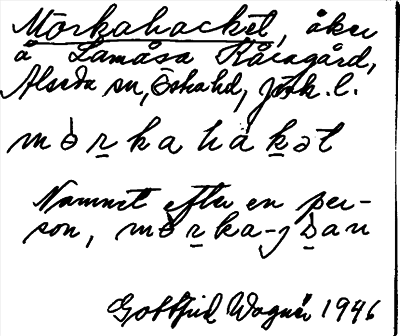 Mörkahacket, åker
å Lamåsa Råsagård,
Alseda sn, Ö. hd, Jönk. l.
mòṟkahàḵət
Namnet efter en per-
son, mòṟka-jòan
Gottfrid Wagnér 1946